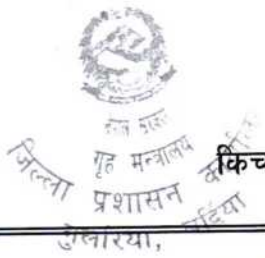 नेपाल सरकार
गृह मन्त्रालय
जिल्ला प्रशासन कार्यालय
गुलरिया, बर्दिया
किच